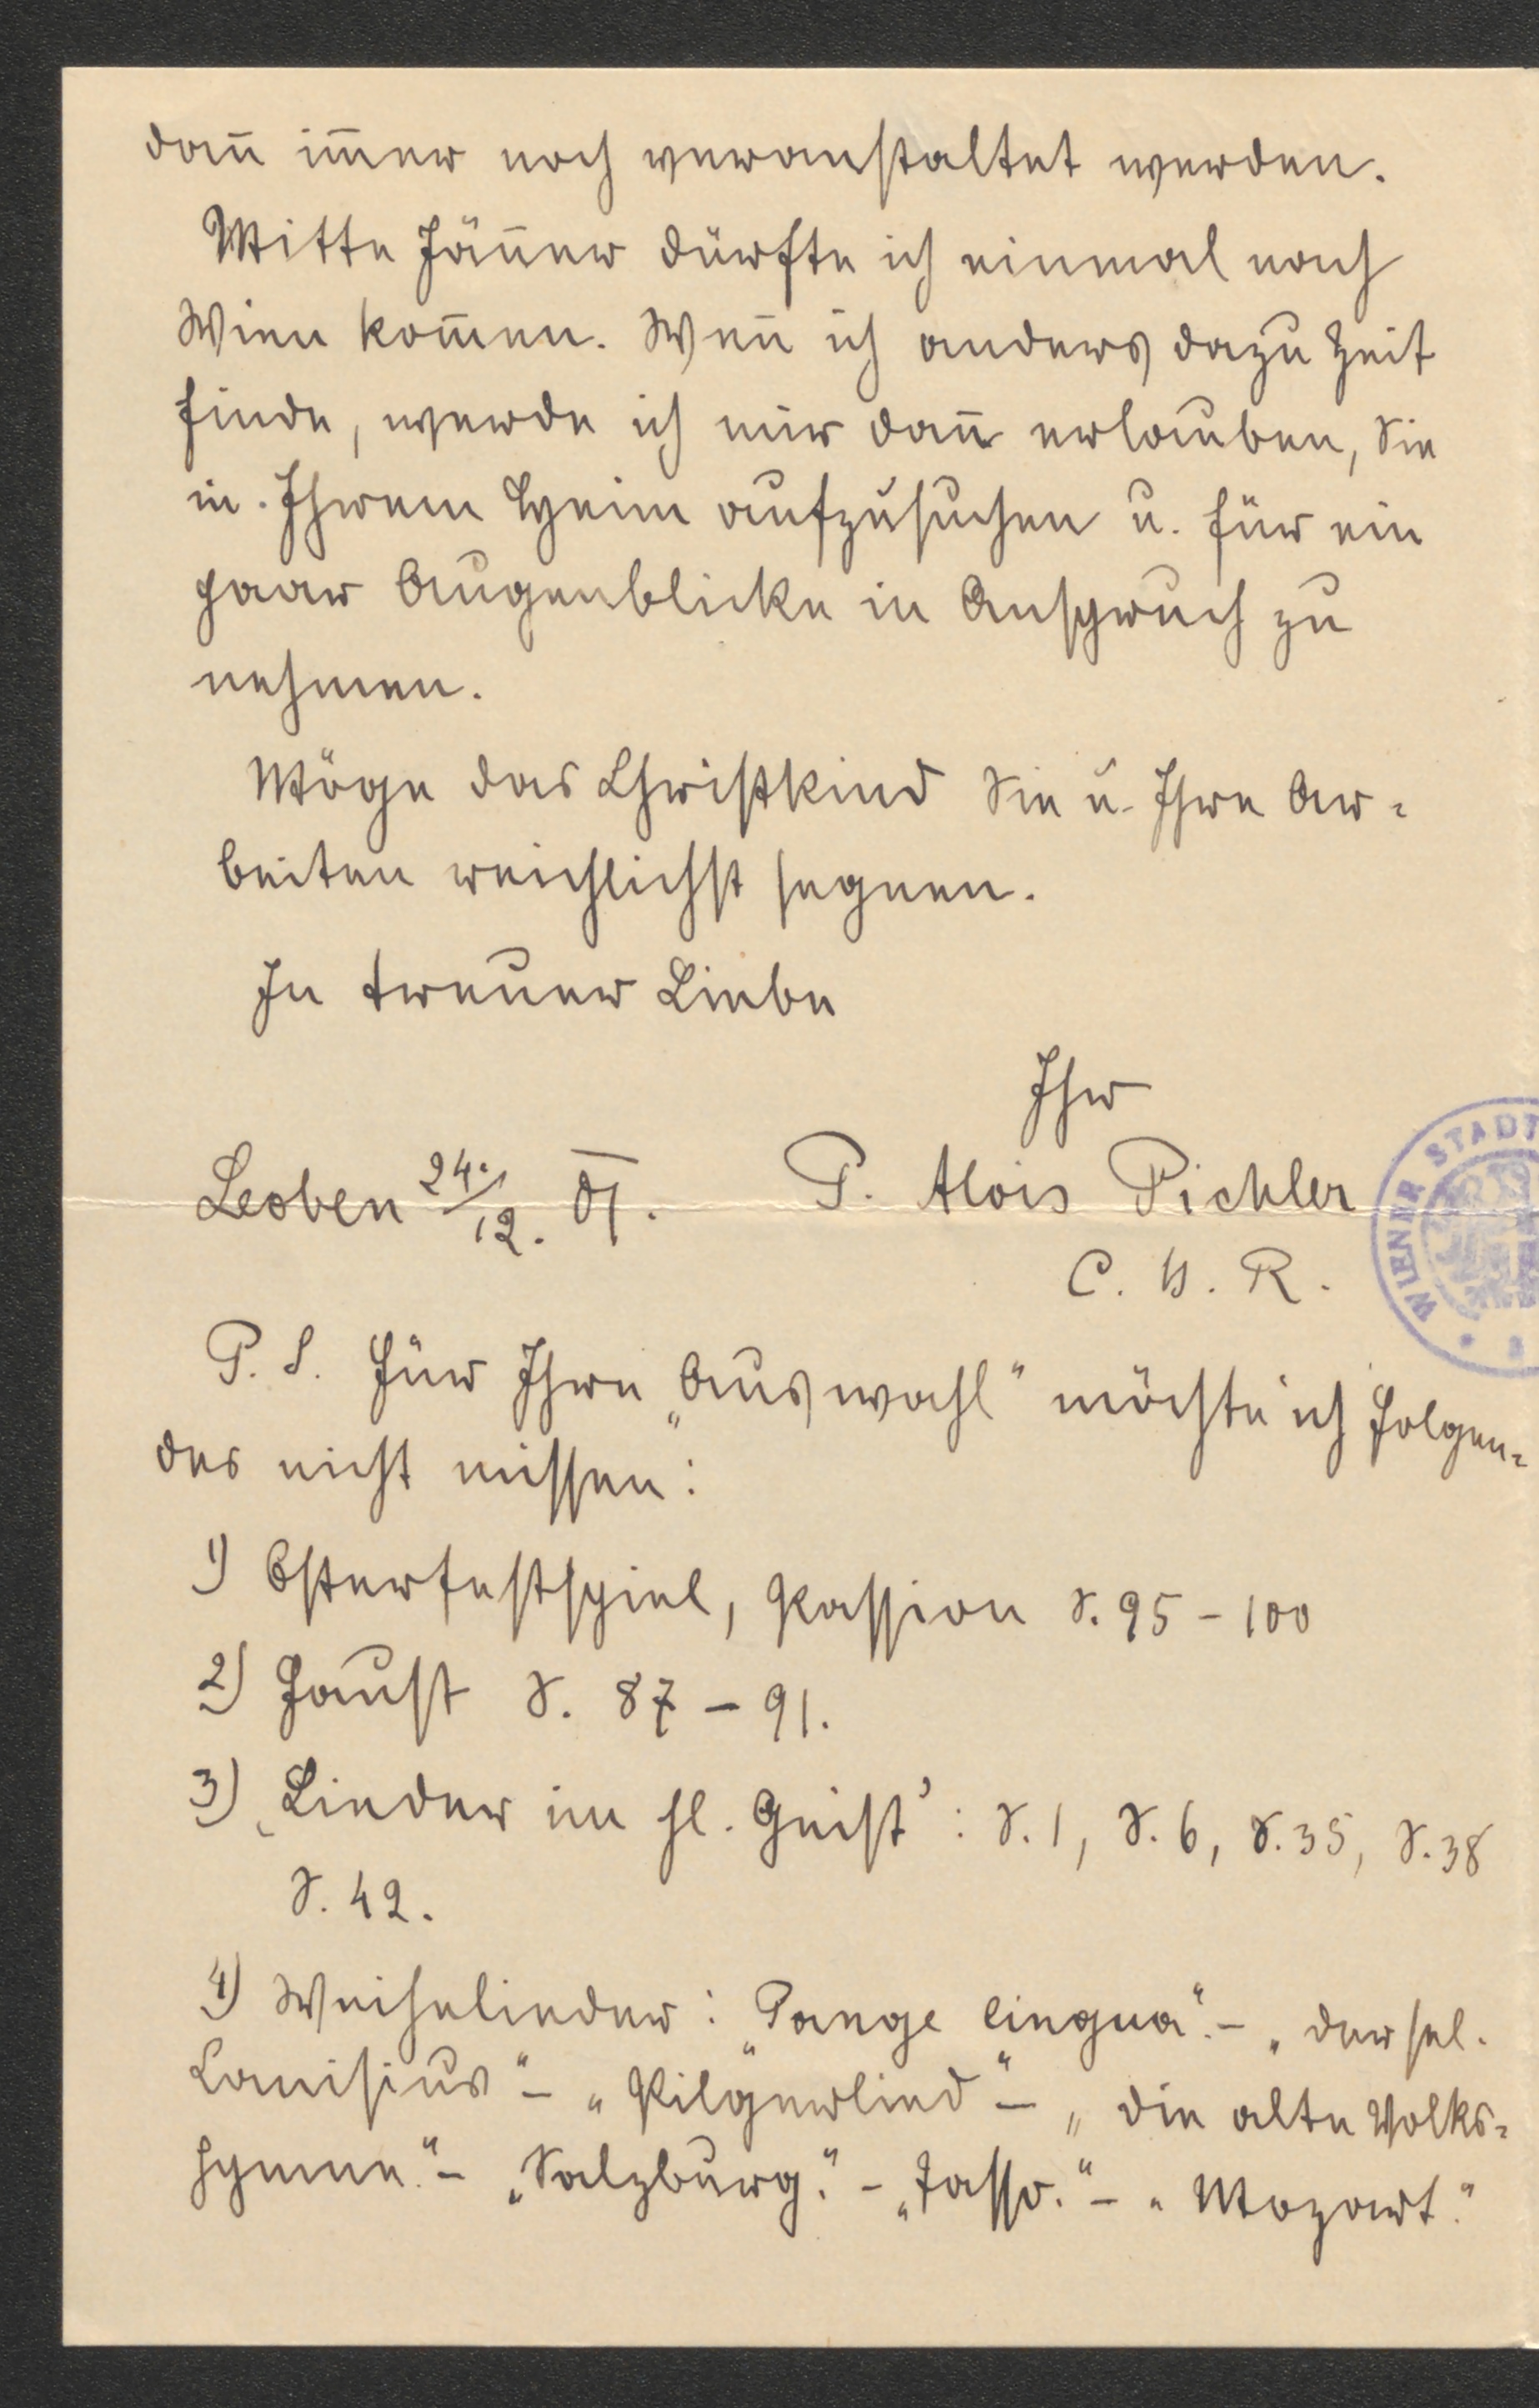 dañ im̄er noch veranstaltet werden.
Mitte Jäñer dürfte ich einmal nach
Wien kom̄en. Weñ ich anders dazu Zeit
finde, werde ich mir dañ erlauben, Sie
in Ihrem Heim aufzusuchen u. für ein
paar Augenblicke in Anspruch zu
nehmen.
Möge das Christkind Sie u. Ihre Ar-
beiten reichlichst segnen.
In treuer Liebe
Ihr
Leoben 24./12. 01. P. Alois Pichler
C. Ss. R.
WIENER STADT
P. S. Für Ihre „Auswahl" möchte ich folgen-
des nicht missen:
1) Osterfestspiel, Passion S. 95 - 100
2) Faust S. 87 - 91.
3) ‚Lieder im hl. Geist': S. 1, S. 6, S. 35, S. 38
S. 42.
4) Weihelieder: „Pange lingua". - „der sel.
Canisius" - „Pilgerlied" - „die alte Volks-
hymne." - „Salzburg." - „Tasso." - „Mozart."